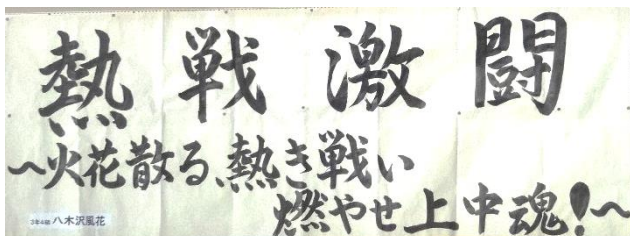 熱戦激闘
～火花散る、熱き戦い
燃やせ上中魂！～
3年4組 八木沢風花